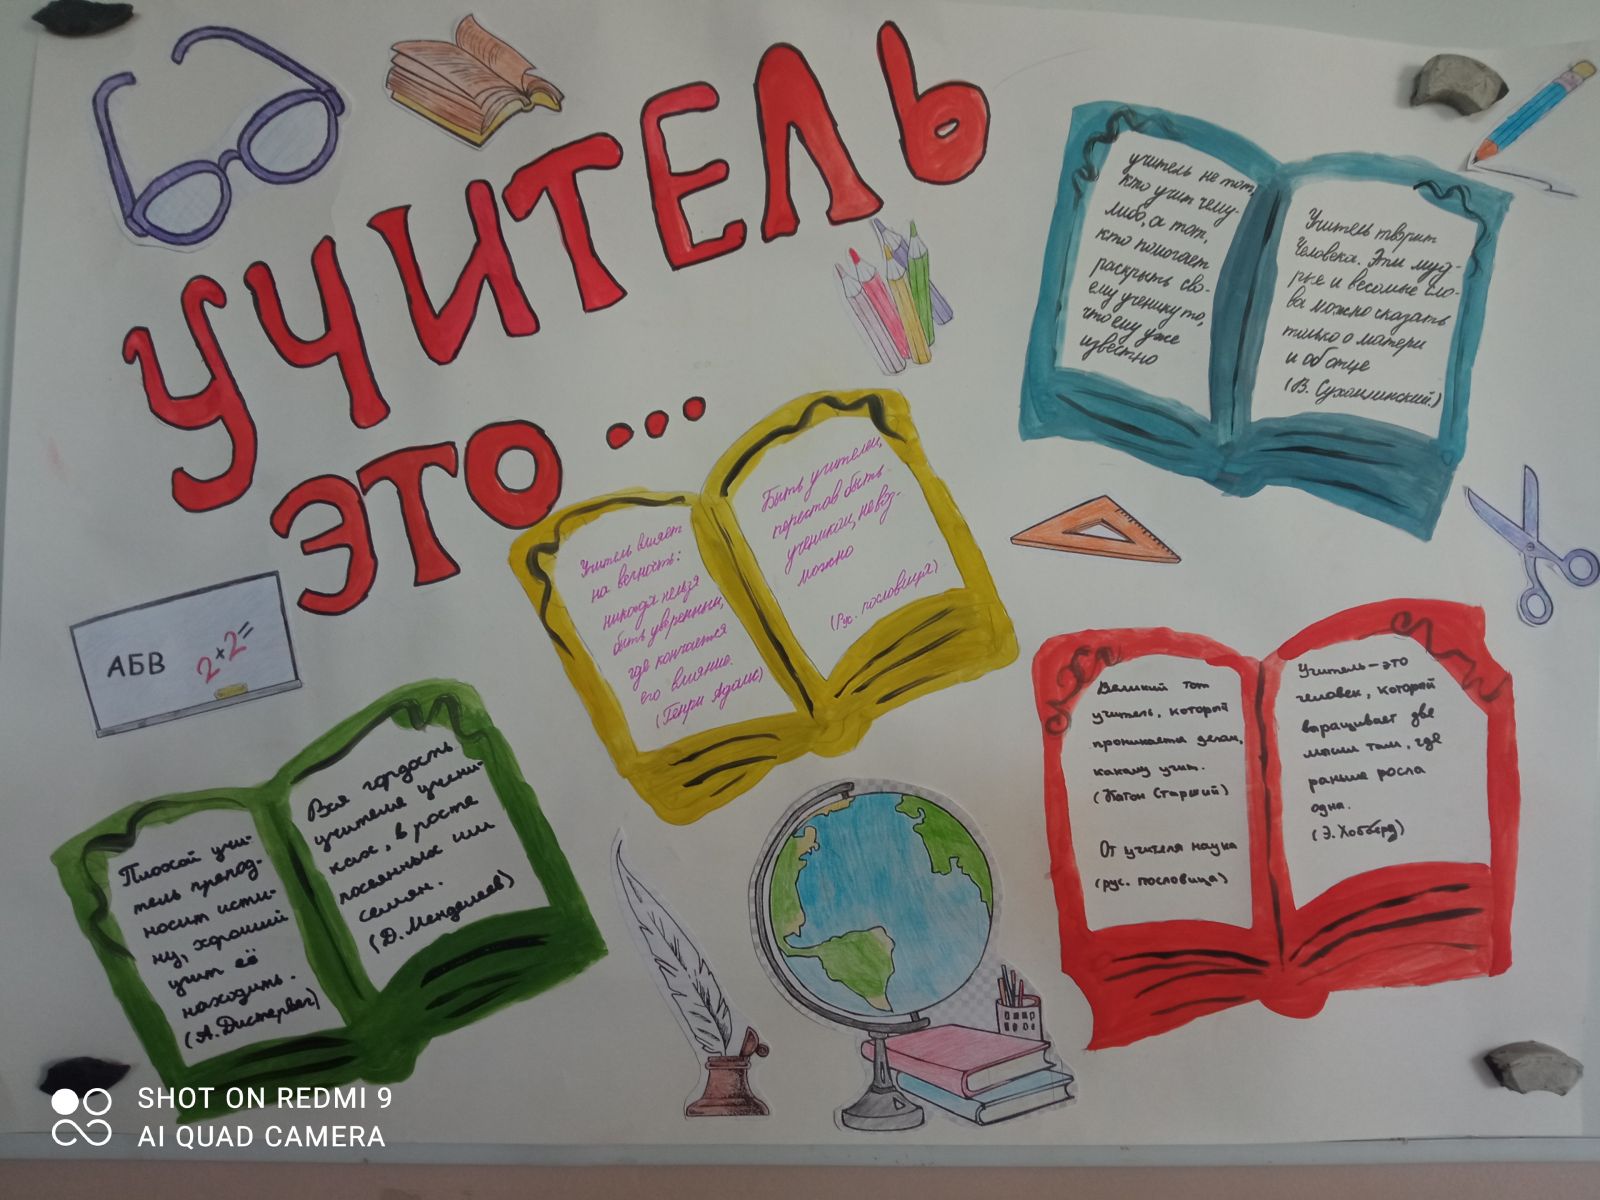 УЧИТЕЛЬ
ЭТО...
учитель не тот,
кто учит чему-
либо, а тот,
кто помогает
раскрыть сво-
ему ученику то,
что ему уже
известно
Учитель творит
человека. Эти муд-
рые и весомые сло-
ва можно сказать
только о матери
и об отце
(В. Сухомлинский)
Учитель влияет
на вечность:
никогда нельзя
быть уверенным,
где кончается
его влияние.
(Генри Адамс)
Быть учителем,
перестав быть
учеником, невоз-
можно
(Рус. пословица)
АБВ
2×2=
Плохой учи-
тель препод-
носит исти-
ну, хороший
учит её
находить.
(А. Дистервег)
Вся гордость
учителя учени-
ках, в росте
посеянных им
семян.
(Д. Менделеев)
Великий тот
учитель, который
проникается делам,
какому учит.
(Катон Старший)
От учителя наука
(рус. пословица)
Учитель – это
человек, который
выращивает две
мысли там, где
раньше росла
одна.
(Э. Хобберд)
SHOT ON REDMI 9
AI QUAD CAMERA